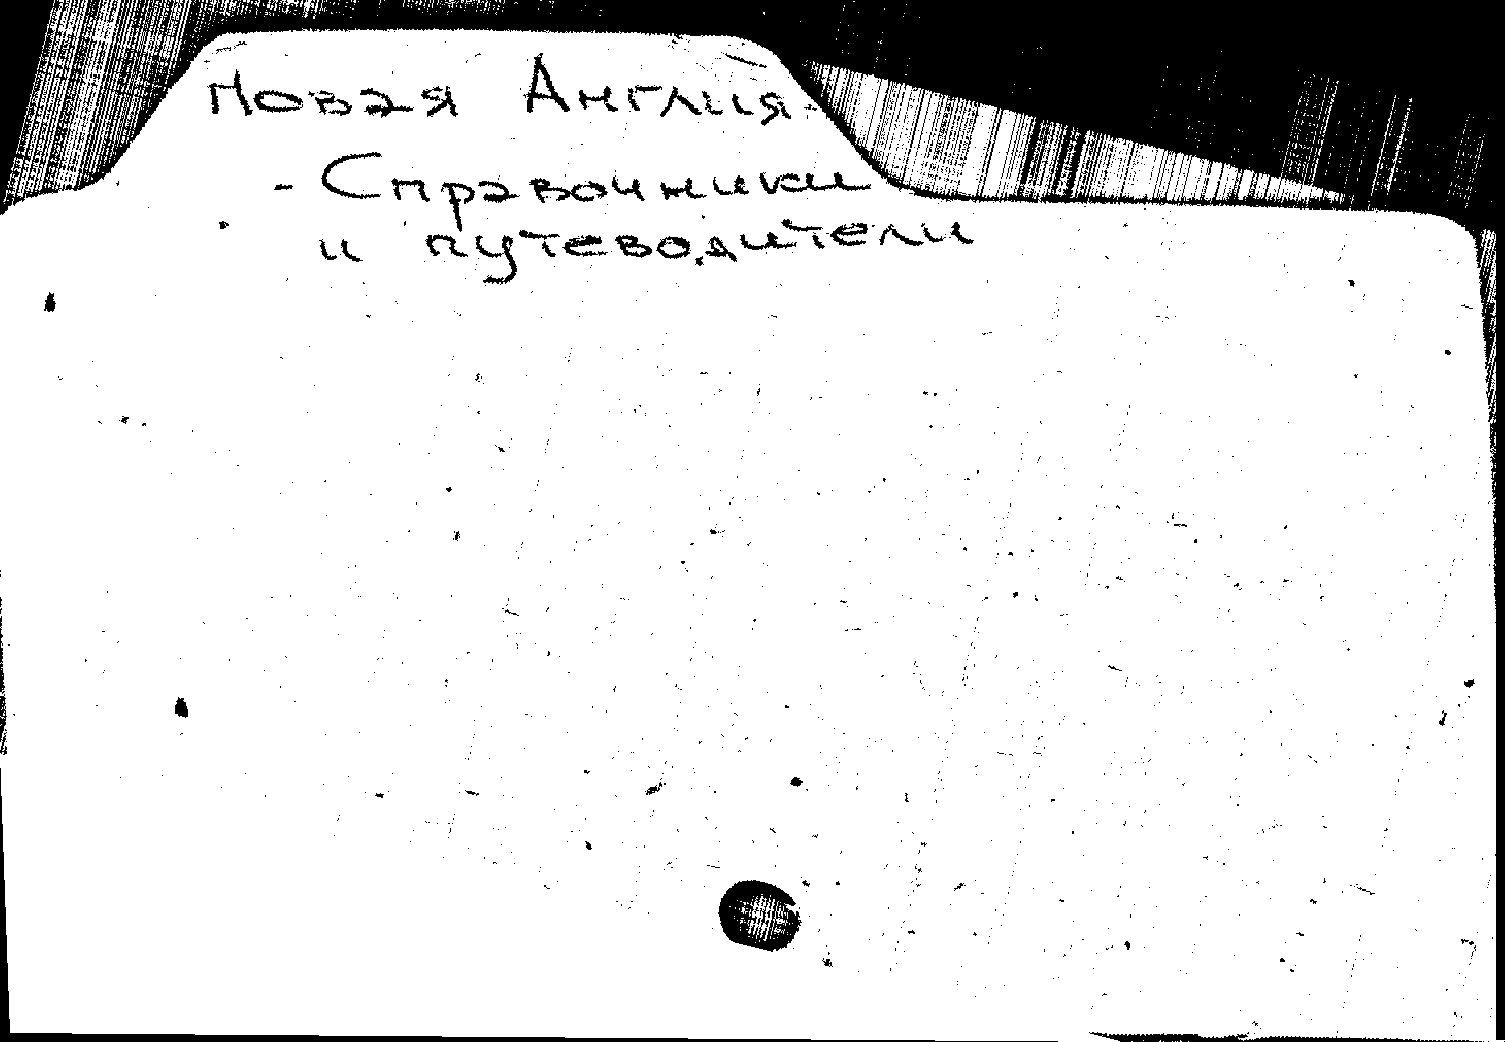 Новая Англия -
- Справочники
и путеводители